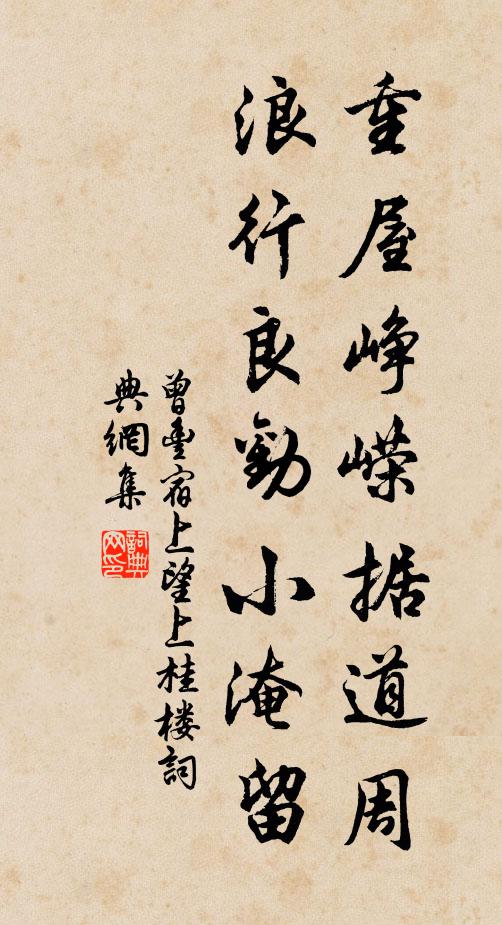 重屋峥嵘据道周
浪行良勤小淹留
曾豊宿上望上桂楼詞
典網集
詞典
网印